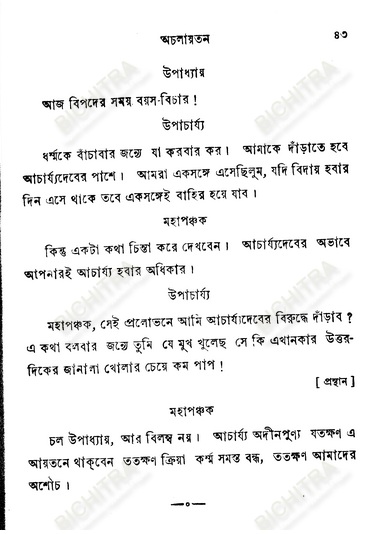 অচলায়তন ৪৩
উপাধ্যায়
আজ বিপদের সময় বয়স-বিচার !
উপাচার্য্য
ধর্ম্মকে বাঁচাবার জন্যে যা করবার কর। আমাকে দাঁড়াতে হবে
আচার্য্যদেবের পাশে। আমরা একসঙ্গে এসেছিলুম, যদি বিদায় হবার
দিন এসে থাকে তবে একসঙ্গেই বাহির হয়ে যাব।
মহাপঞ্চক
কিন্তু একটা কথা চিন্তা করে দেখবেন। আচার্য্যদেবের অভাবে
আপনারই আচার্য্য হবার অধিকার।
উপাচার্য্য
মহাপঞ্চক, সেই প্রলোভনে আমি আচার্য্যদেবের বিরুদ্ধে দাঁড়াব ?
এ কথা বলবার জন্যে তুমি যে মুখ খুলেছ সে কি এখানকার উত্তর-
দিকের জানালা খোলার চেয়ে কম পাপ !
[ প্রস্থান ]
মহাপঞ্চক
চল উপাধ্যায়, আর বিলম্ব নয়। আচার্য্য অদীনপুণ্য যতক্ষণ এ
আয়তনে থাক্‌বেন ততক্ষণ ক্রিয়া কর্ম্ম সমস্ত বন্ধ, ততক্ষণ আমাদের
অশৌচ।
BICHITRA